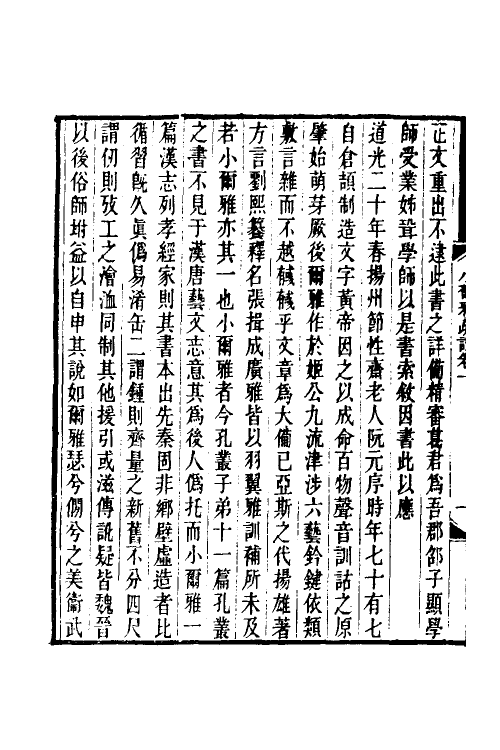 正文重出不逮此書之詳備精審葛君爲吾郡郃子顯學
師受業姊聓學師以是書索敘因書此以應
道光二十年春揚州節性齋老人阮元序時年七十有七
自倉頡制造文字黃帝因之以成命百物聲音訓詁之原
肇始萌芽厥後爾雅作於姬公九流津涉六藝鈐鍵依類
敷言雜而不越鱤鱤乎文章爲大備已亞斯之代揚雄著
方言劉熙纂釋名張揖成廣雅皆以羽翼雅訓補所未及
若小爾雅亦其一也小爾雅者今孔叢子弟十一篇孔叢
之書不見于漢唐藝文志意其爲後人僞托而小爾雅一
篇漢志列孝經家則其書本出先秦固非鄉壁虛造者比
循習旣久眞僞易淆缶二謂鍾則齊量之新舊不分四尺
謂仞則攷工之澮洫同制其他援引或滋傳訛疑皆魏晉
以後俗師坿益以自申其說如爾雅瑟兮僩兮之美衞武